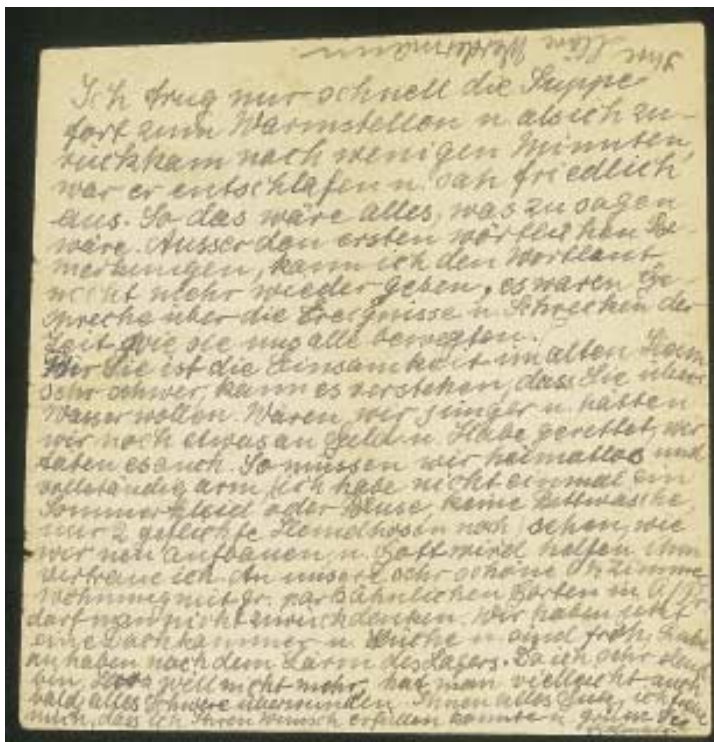 Ich trug nur schnell die Suppe
fort zum Warmstellen u als ich zu-
rückkam nach wenigen Minuten,
war er entschlafen u. sah friedlich
aus. So das wäre alles, was zu sagen
wäre. Ausser den ersten wörtlichen Be-
merkungen, kann ich den Wortlaut
nicht mehr wieder geben, es waren Ge-
spreche über die Ereignisse u. Schrecken der
Zeit wie sie uns alle bewegten.
Für Sie ist die Einsamkeit im alten Heim
sehr schwer, kann es verstehen, dass Sie übers
Wasser wollen. Wären wir jünger u. hätten
wir noch etwas an Geld u. Habe gerettet, wir
täten es auch. So müssen wir heimatlos und
vollständig arm, ich habe nicht einmal ein
Sommerkleid oder Bluse, keine Bettwäsche,
nur 2 geflickte Hemdhosen noch, sehen, wie
wir neu aufbauen, u. Gott wird helfen ihm
vertraue ich. An unsere sehr schöne Zimmer
wohnung mit gr. parkähnlichen Garten in
darf man nicht zurückdenken, wir haben jetzt
eine Dachkammer u. Küche u sind froh, Ruhe
zu haben nach dem Lärm des Lagers. Da ich sehr elend
bin, Herz will nicht mehr, hat man vielleicht auch
bald alles Schwere überwunden. Ihnen alles Gute, ich freue
mich, dass ich Ihren Wunsch erfüllen konnte u grüsse Sie
Ihre Werdermann